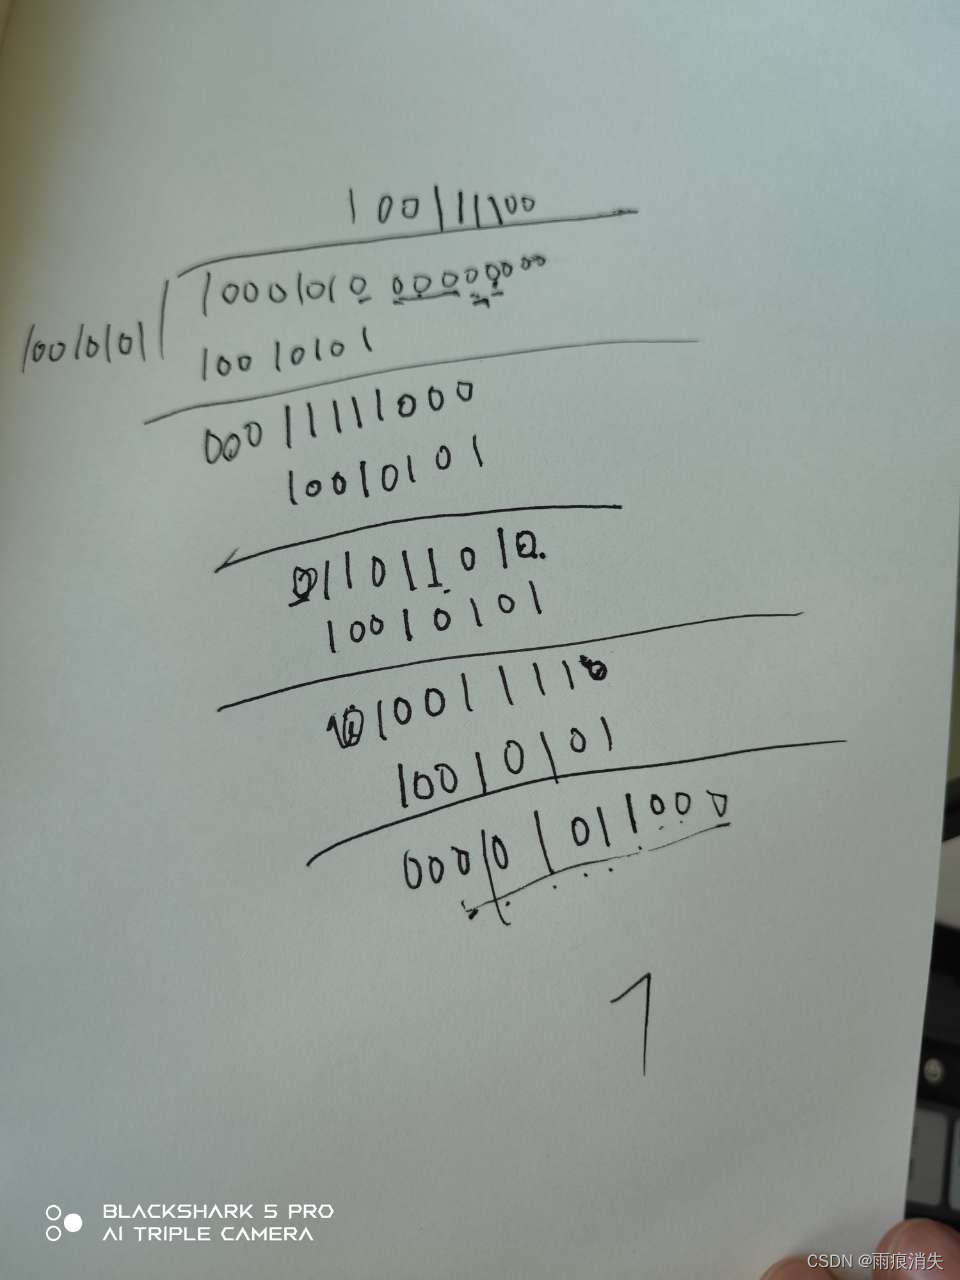 100111100
1000101000000000
10010101
10010101
00011111000
10010101
011011010
10010101
1001111
10010101
000101011000
1
BLACKSHARK 5 PRO
AI TRIPLE CAMERA
CSDN @雨痕消失